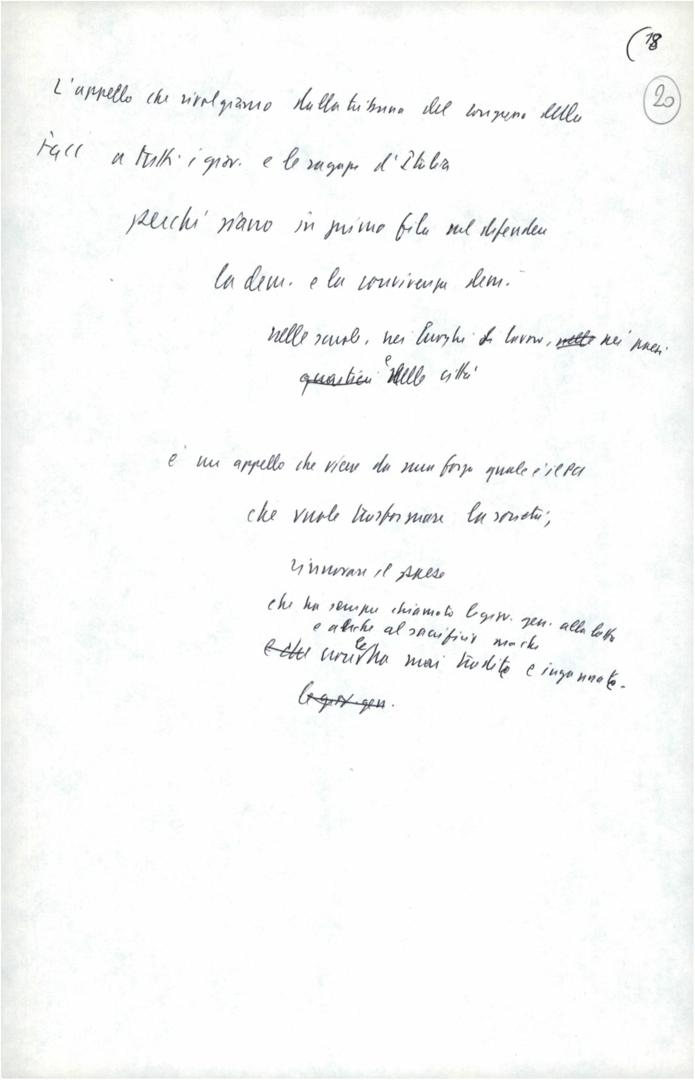 (18
20
L'appello che rivolgiamo dalla tribuna del congresso della
FGCI a tutti i giov. e le ragazze d'Italia
perché siano in prima fila nel difendere
la dem. e la convivenza dem.
nelle scuole, nei luoghi di lavoro, nelle nei paesi
quartieri e delle città
è un appello che viene da una forza quale è il PCI
che vuole trasformare la società,
rinnovare il paese
che ha sempre chiamato le giov. gen. alla lotta
e anche al sacrificio ma che
e che non le ha mai tradite e ingannate.
le giov. gen.